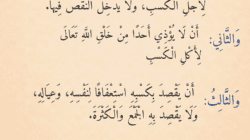 لِأَجْلِ الْكَسْبِ، وَلَا يُدْخِلَ النَّقْصَ فِيهَا.
وَالثَّانِي: أَنْ لَا يُؤْذِيَ أَحَدًا مِنْ خَلْقِ اللَّهِ تَعَالَى
لِأَجْلِ الْكَسْبِ
وَالثَّالِثُ: أَنْ يَقْصِدَ بِكَسْبِهِ اسْتِعْفَافًا لِنَفْسِهِ، وَعِيَالِهِ،
وَلَا يَقْصِدَ بِهِ الْجَمْعَ وَالْكَثْرَةَ.